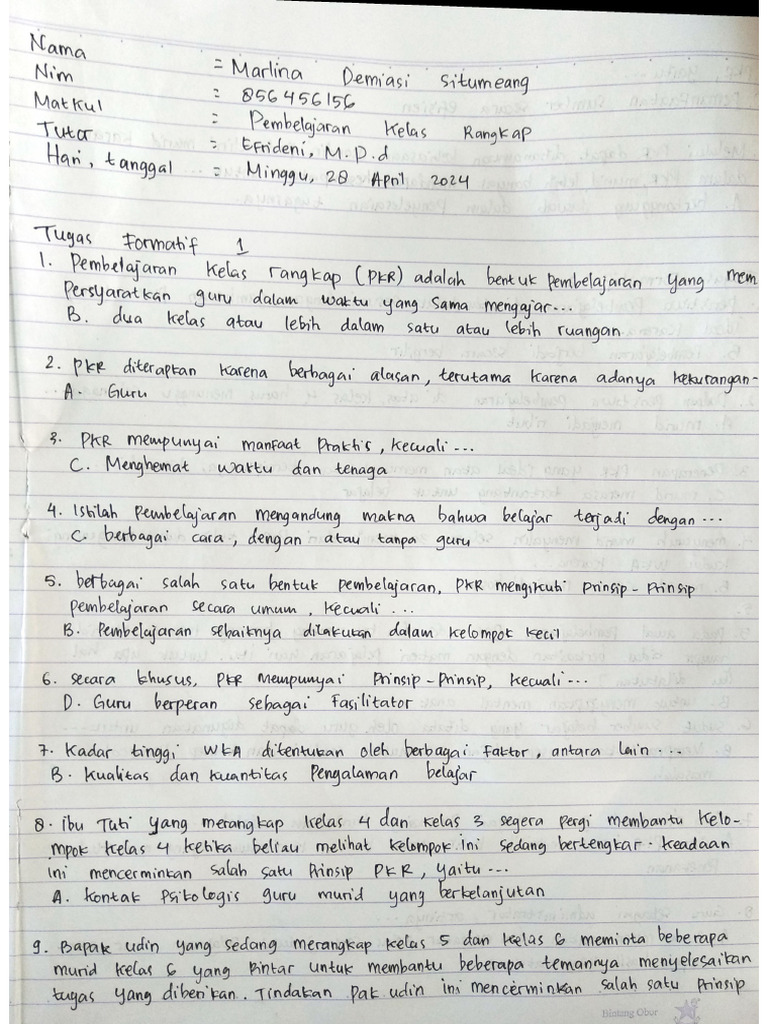 Nama = Marlina Demiasi Situmeang
Nim : 856456156
Matkul = Pembelajaran Kelas Rangkap
Tuta = Efrideni, M.P.d
Hari, tanggal = Minggu, 28 April 2024
Tugas Formatif 1
1. Pembelajaran Kelas rangkap (PKR) adalah bentuk pembelajaran yang mem
Persyaratkan guru dalam waktu yang sama mengajar...
B. dua kelas atau lebih dalam satu atau lebih ruangan
2. PKR diterapkan karena berbagai alasan, terutama karena adanya kekurangan-
A. Guru
3. PKR mempunyai manfaat Praktis, kecuali ...
C. Menghemat waktu dan tenaga
4. Istilah Pembelajaran mengandung makna bahwa belajar terjadi dengan ...
C. berbagai cara, dengan atau tanpa guru
5. berbagai salah satu bentuk pembelajaran, PKR mengikuti Prinsip-Prinsip
pembelajaran secara umum, kecuali ...
B. Pembelajaran sebaiknya dilakukan dalam kelompok kecil
6. secara khusus, PKR mempunyai Prinsip-Prinsip, kecuali...
D. Guru berperan sebagai Fasilitator
7. Kadar tinggi WKA ditentukan oleh berbagai faktor, antara lain ...
B. Kualitas dan kuantitas Pengalaman belajar
8. ibu Tuti yang merangkap kelas 4 dan kelas 3 segera pergi membantu kelo-
mpok kelas 4 ketika beliau melihat kelompok ini sedang bertengkar. keadaan
ini mencerminkan salah satu Prinsip PKR, yaitu...
A. kontak Psikologis guru murid yang berkelanjutan
9. Bapak udin yang sedang merangkap kelas 5 dan kelas 6 meminta beberapa
murid kelas 6 yang Pintar untuk membantu beberapa temannya menyelesaikan
tugas yang diberikan. Tindakan pak udin ini mencerminkan salah satu Prinsip
Bintang Obor